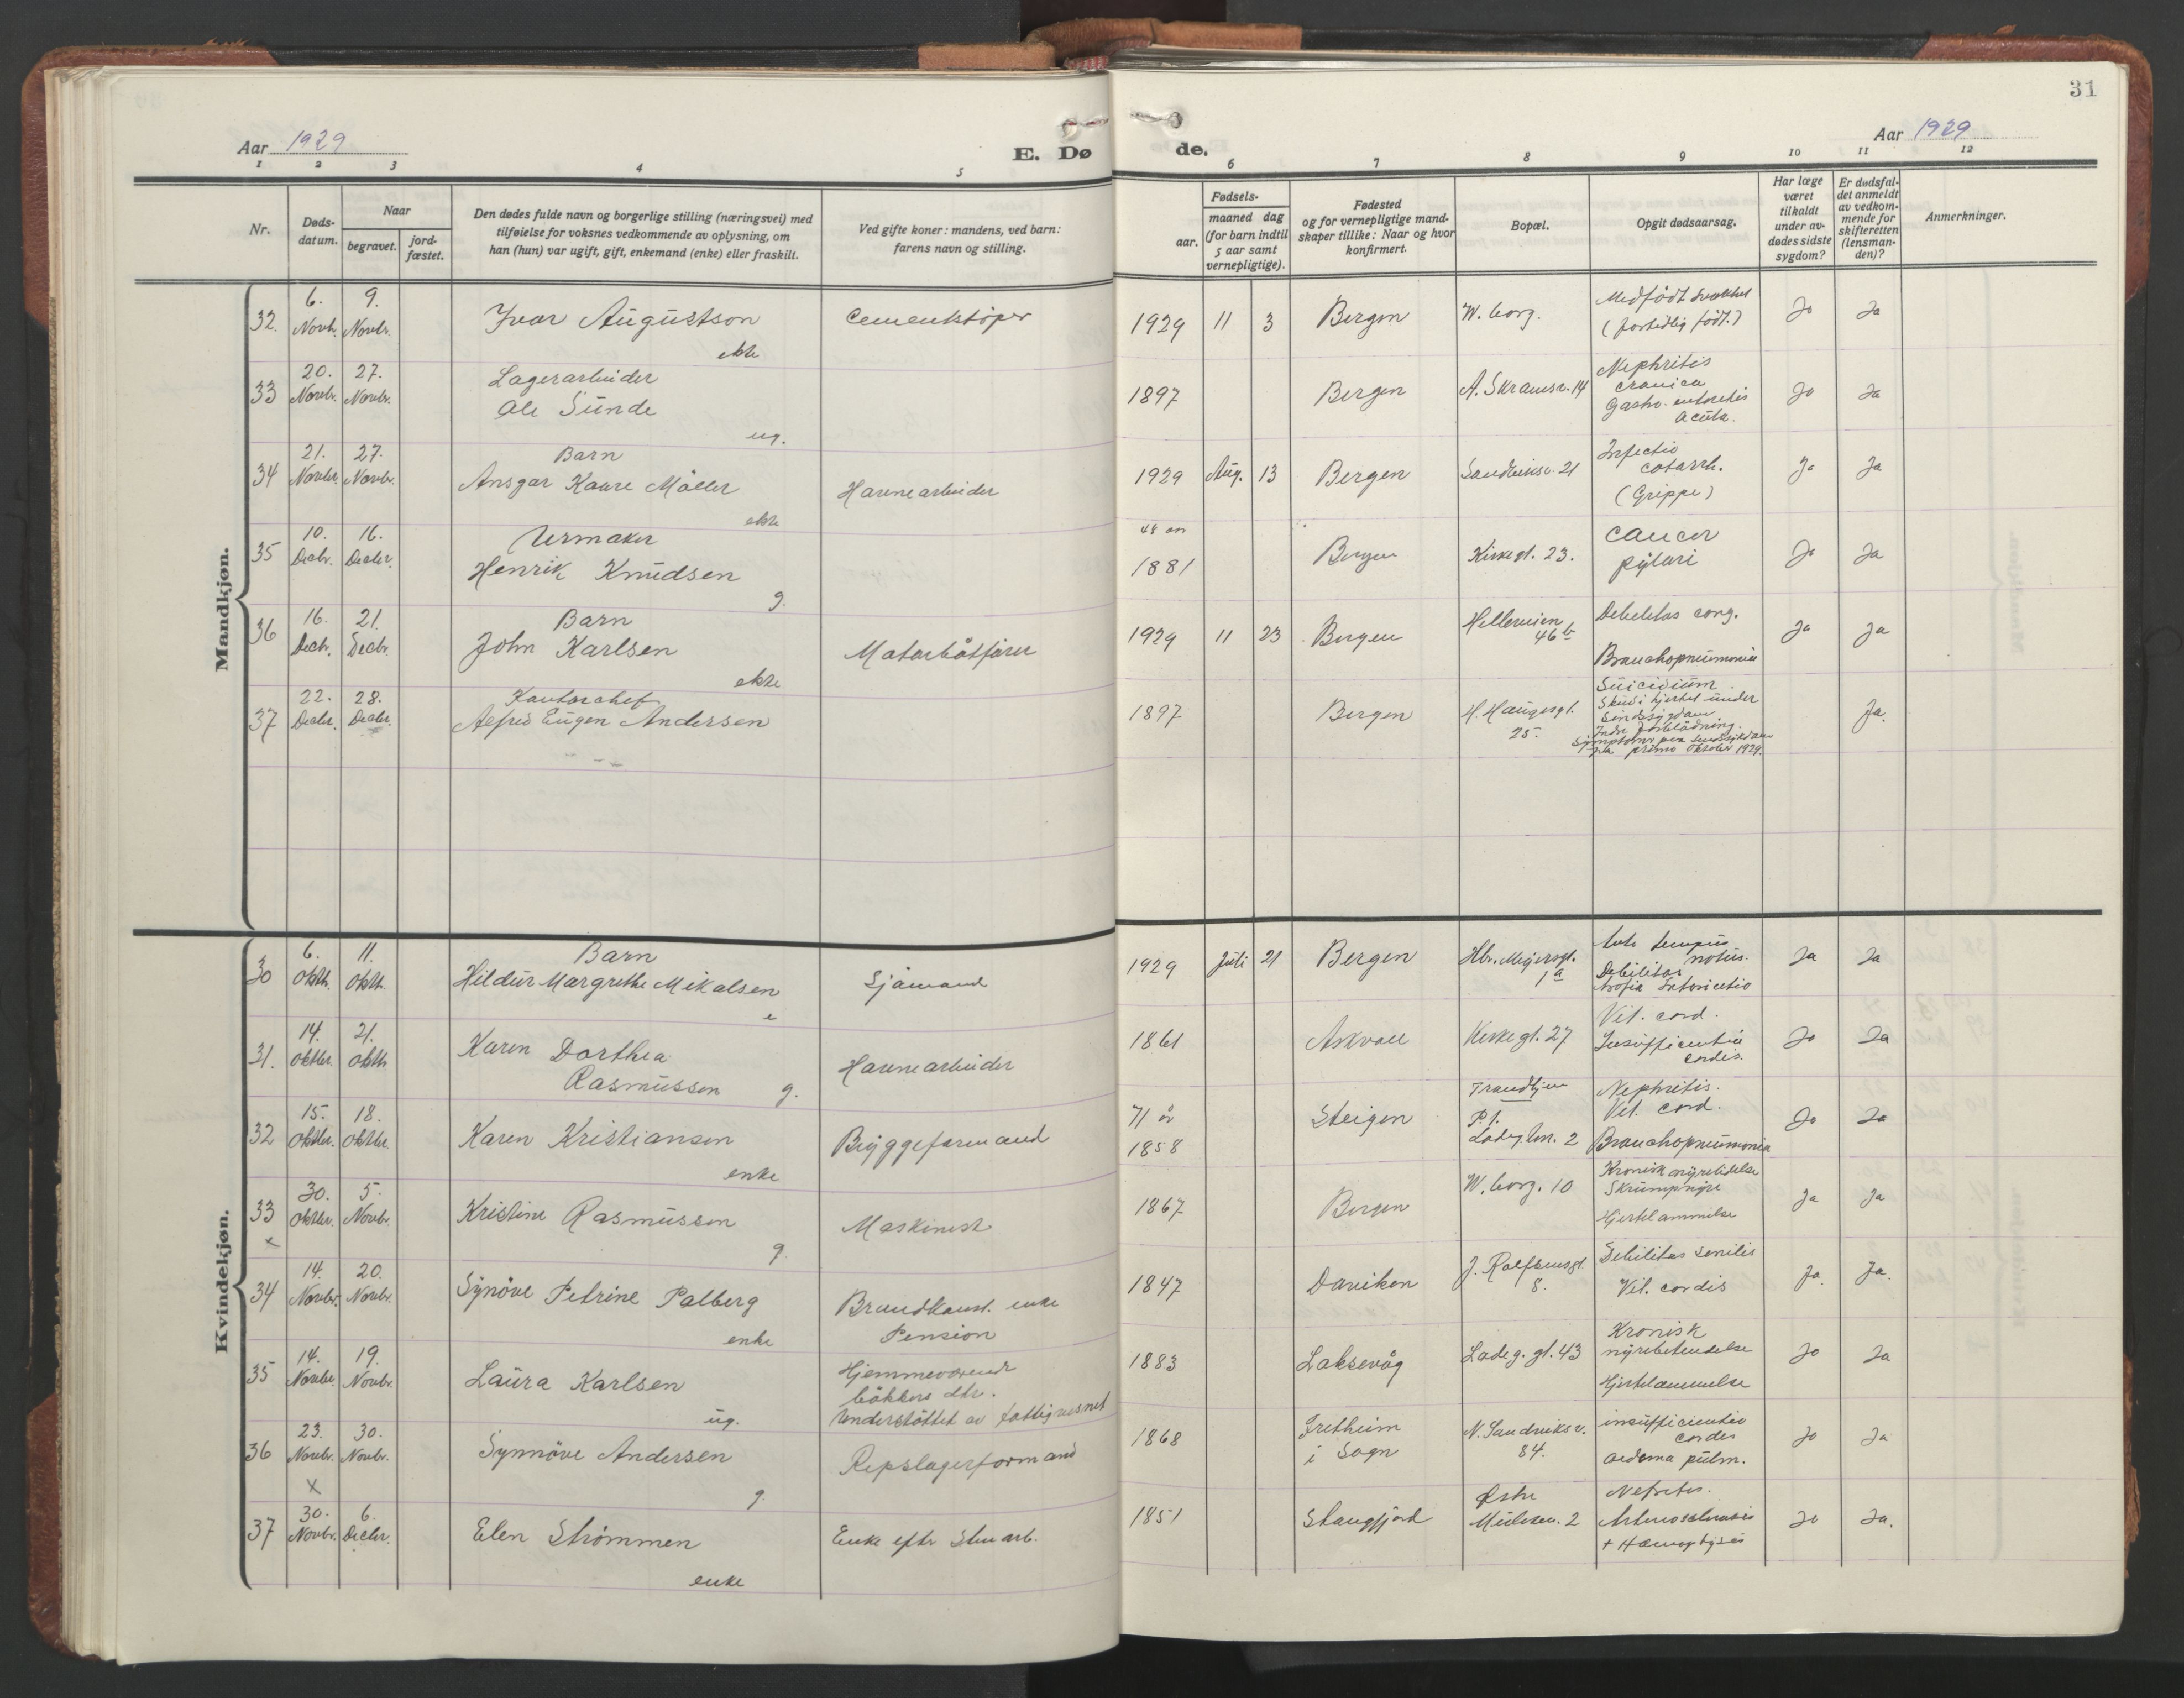 31
Aar 1929
E. Dø de.
Aar 1929
1 2 3 4 5 6 7 8 9 10 11 12
Nr.
Døds-datum.
Naar
begravet.
jord-fæstet.
Den dødes fulde navn og borgerlige stilling (næringsvei) med
tilføielse for voksnes vedkommende av oplysning, om
han (hun) var ugift, gift, enkemand (enke) eller fraskilt.
Ved gifte koner: mandens, ved barn:
farens navn og stilling.
Fødsels-
aar.
maaned dag
(for barn indtil
5 aar samt
vernepligtige).
Fødested
og for vernepligtige mand-
skaper tillike: Naar og hvor
konfirmert.
Bopæl.
Opgit dødsaarsag.
Har læge
været
tilkaldt
under av-
dødes sidste
sygdom?
Er dødsfal-
det anmeldt
av vedkom-
mende for
skifteretten
(lensman-
den)?
Anmerkninger.
Mandkjøn.
32. 6. Novb. 9. Novbr. Ivar Augustson ekte Cementstøper 1929 11 3 Bergen Medfödt svakhet (fortidlig födt.) Jo Ja
33 20. Novbr. 27. Novbr. Lagerarbeider Ole Sunde ug. 1897 Bergen A. Skramsv. 14 Nephritis cronica Gastro-enteritis acuta. Jo Ja
34 21. Novbr. 27. Novbr. Barn Ansgar Kaare Möller ekte Havnearbeider 1929 Aug. 13 Bergen Sandviksv. 21 Infectio catarrh. (Grippe) Ja Ja
35 10. Decbr. 16. Decbr. Urmaker Henrik Knudsen g. 48 år 1881 Bergen Kirkegt. 23. cancer pylori Jo Ja
36 16. Decbr. 21. Decbr. Barn John Karlsen ekte Motorbåtförer 1929 11 23 Bergen Helleveien 46 b Debilitas cong. Bronchopneumonia Ja Ja
37 22. Decbr. 28. Decbr. Kontorchef Alfred Eugen Andersen 1897 Bergen H. Haugesgt. 25. Suicidium Skud i hjertet under Sindssygdom Indre forblödning. Symptomer paa Sindssykdom fra primo Oktober 1929. Ja.
Kvindekjøn.
30 6. Oktb. 11. Oktb. Barn Hildur Margrethe Mikalsen e Sjömand 1929 Juli 21 Bergen Hbr. Meyersgt. 1a Ante tempus natus. Debilitas Atrofia Intoxicatio Ja Ja
31. 14. Oktbr. 21. Oktb. Karen Dorthea Rasmussen g. Havnearbeider 1861 Askvoll Kirkegt. 27 Vit. cord. Insufficientia cordis. Jo Ja
32 15. Oktbr. 18. Oktbr. Karen Kristiansen enke Bryggeformand 71 år 1858 Steigen Trondhjem P.t. Ladeg. 2 Nephritis. Vit. cord. Bronchopneumonia Jo Ja
33 x 30. Oktbr. 5. Novbr. Kristine Rasmussen g. Maskinist 1867 Bergen Kronisk nyrelidelse Skrumpnyre Hjertelammelse Ja Ja
34 14. Novbr. 20. Novbr. Synöve Petrine Palberg enke Brandkonst. enke Pension 1847 Daviken J. Rolfsensgt. 8. Debilitas senilis Vit. cordis Ja. Ja.
35 14. Novbr. 19. Novbr. Laura Karlsen ug. Hjemmeværende bökkers dtr. Understöttet av fattigvesnet 1883 Laksevåg Ladeg. gt. 43 Kronisk nyrebetendelse Hjertelammelse Jo Ja
36 23. Novbr. x 30. Novbr. Synnöve Andersen g. Repslagerformand 1868 Fretheim i Sogn N. Sandviksv. 84. insufficientia cordis oedema pulm. Jo Ja
37 30. Novbr. 6. Decbr. Elen Strömmen enke Enke efter Stenarb. 1851 Stangfjord Østre Mulelven. 2 Nefritis. Arteriosclerosis + Hæmoptysis Jo Ja.